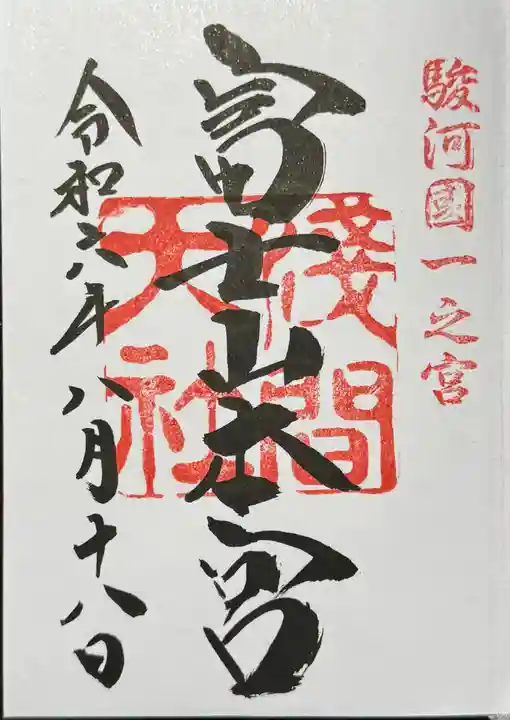 駿河國一之宮
富士山本宮
淺間
大社
令和六年八月十八日